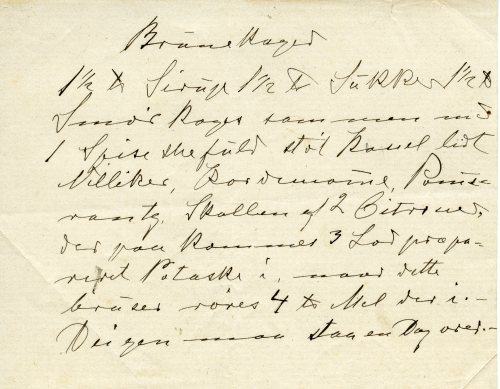 Brune Kager
1½ ℔ Sirup 1½ ℔ Sukker 1½ ℔
Smør koges sammen med
1 Spiseskefuld støt Kanel lidt
Nilliker, Kardemome, Pome-
rants, Skallen af 2 Citroner,
der paa kommes 3 Lod præpa-
riret Potaske i, naar dette
bruser røres 4 ℔ Mel der i.
Deigen maa staa en Dag over.–